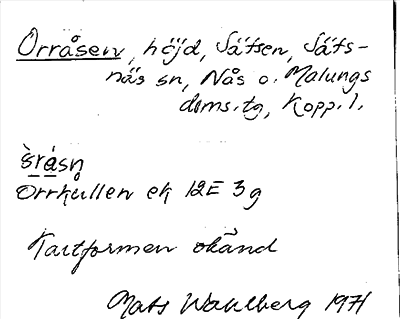 Orråsen, höjd, Sätsen, Säts-
näs sn, Nås o. Malungs
doms.tg, Kopp. l.
Orrkullen ek 12E 3g
Kartformen okänd
Mats Wahlberg 1971